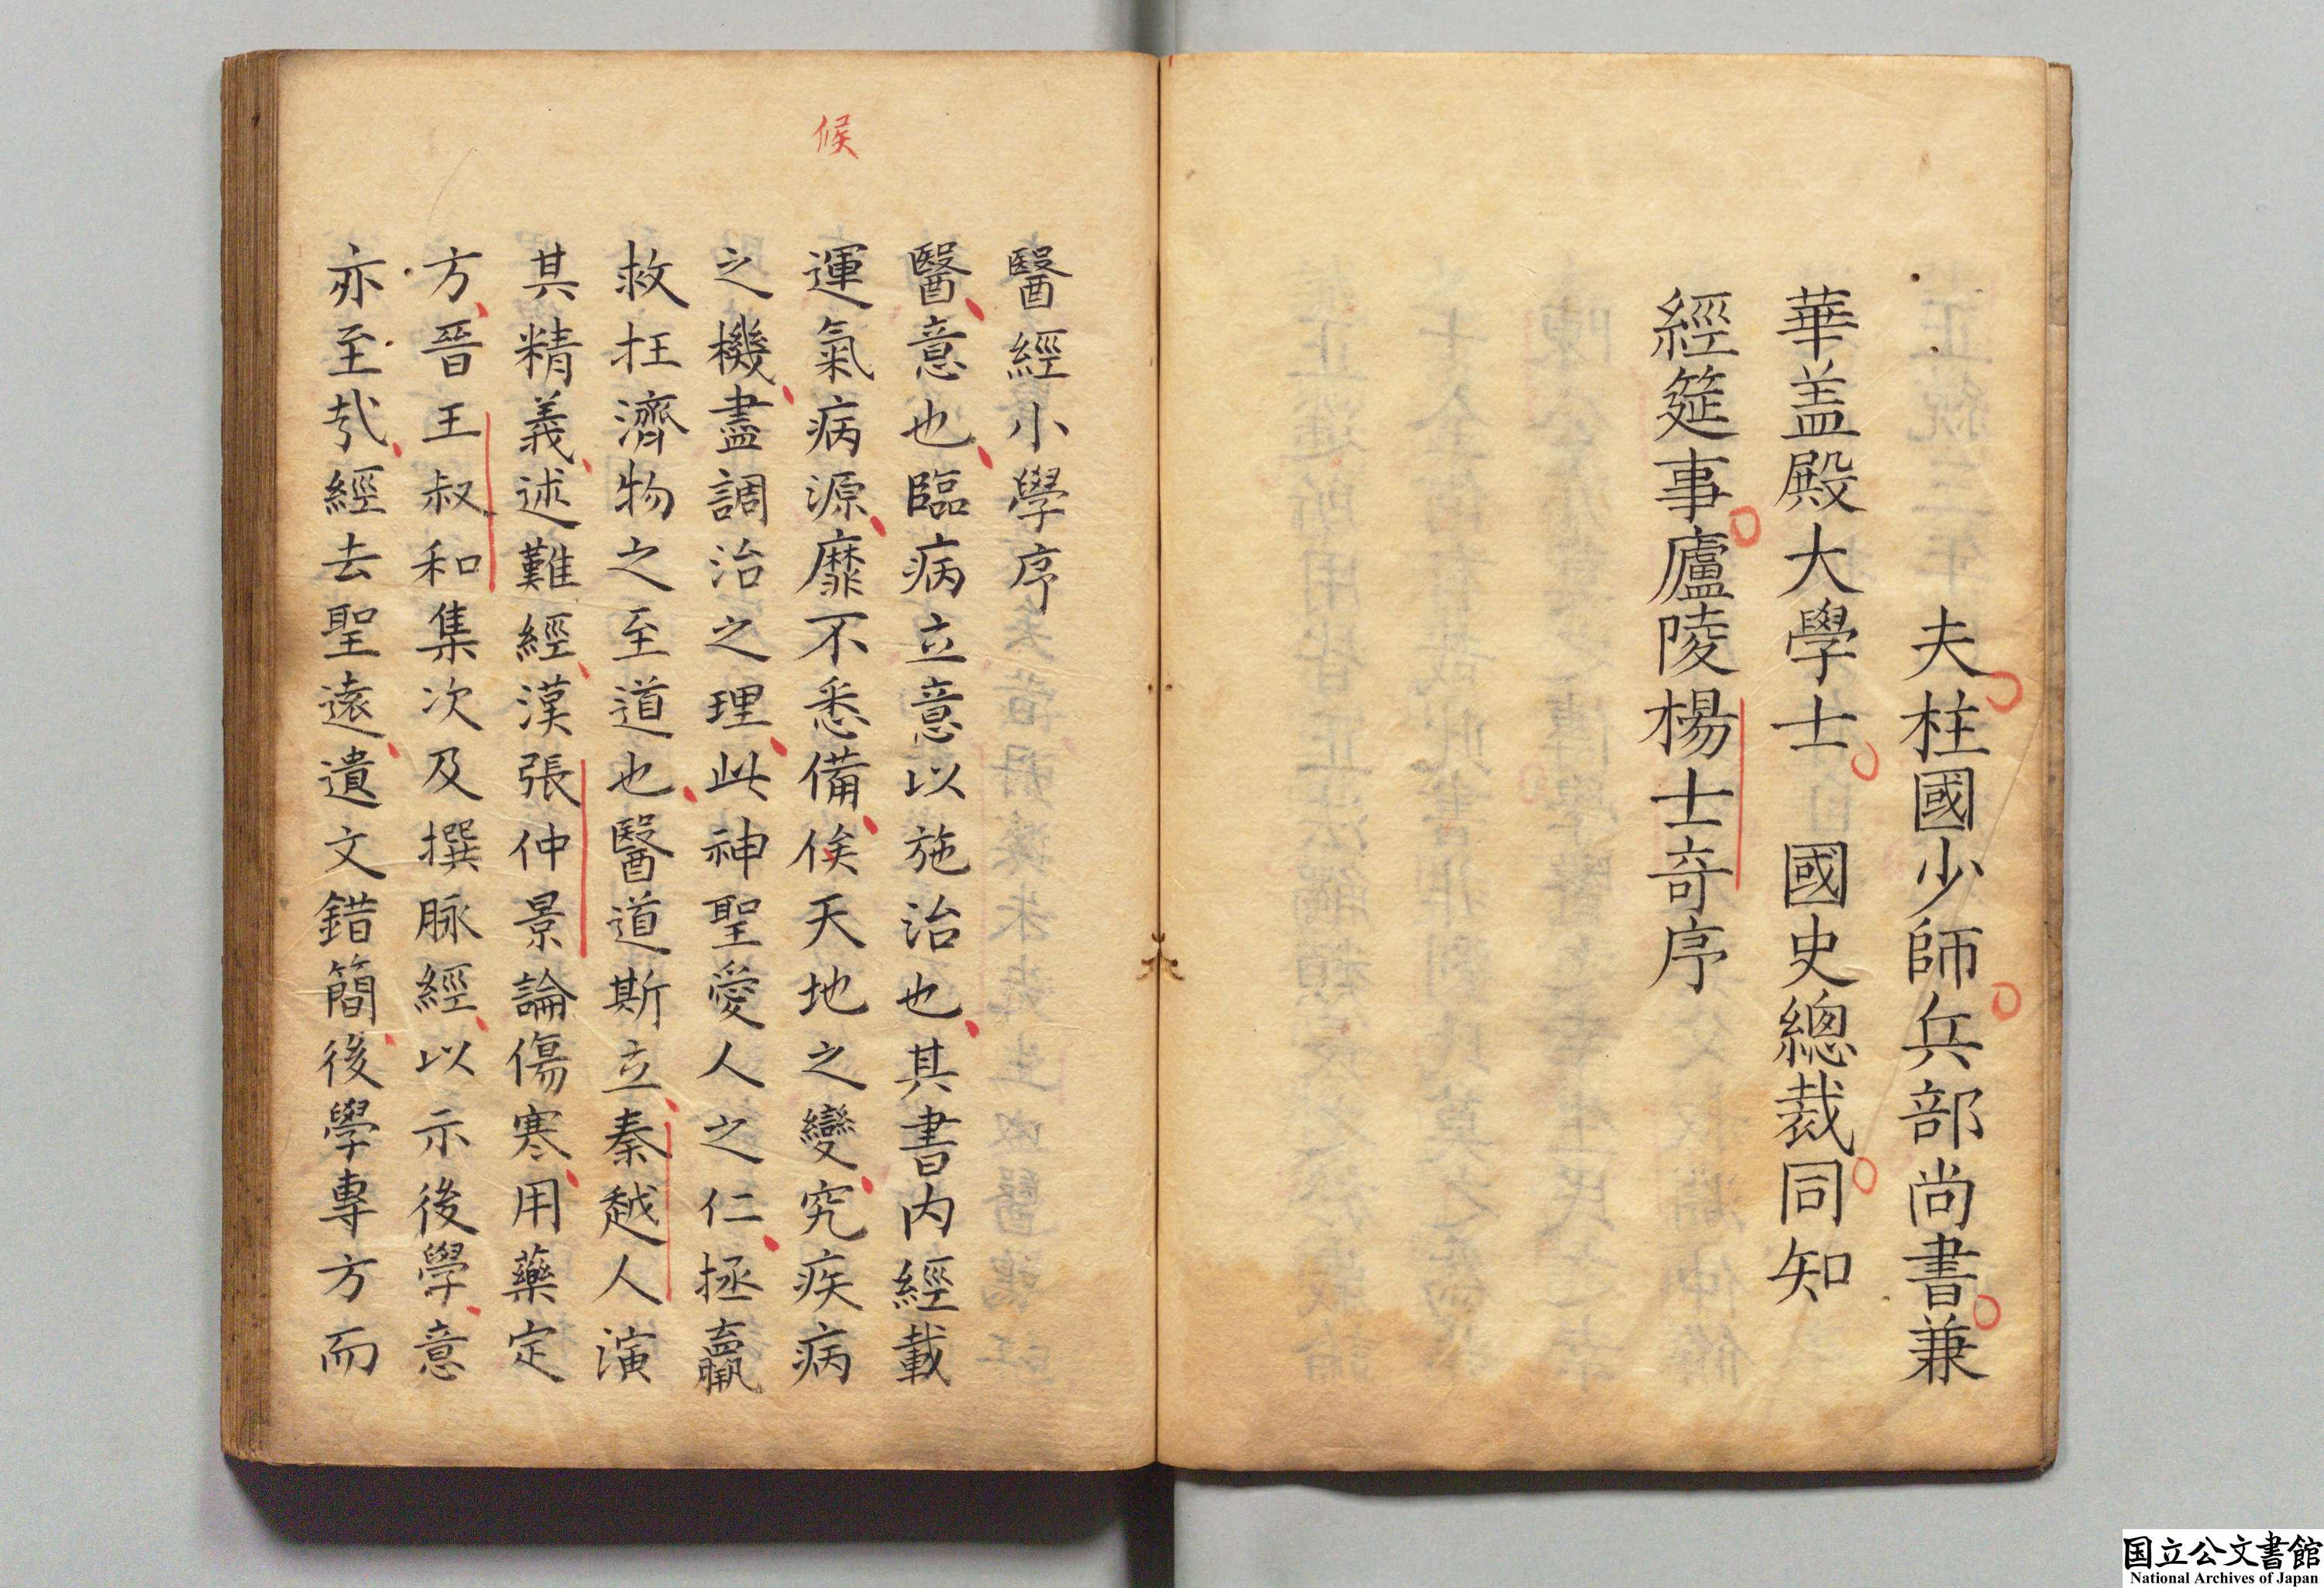 夫柱國少師兵部尚書兼
華盖殿大學士　國史總裁同知
經筵事廬陵楊士竒序
醫經小學序
醫意也臨病立意以施治也其書内經載
運氣病源靡不悉備俟天地之變究疾病
候
之機盡調治之理此神聖愛人之仁拯羸
救抂濟物之至道也醫道斯立秦越人演
其精義述難經漢張仲景論傷寒用藥定
方晉王叔和集次及撰脉經以示後學意
亦至㢤經去聖遠遺文錯簡後學專方而
国立公文書館
National Archives of Japan